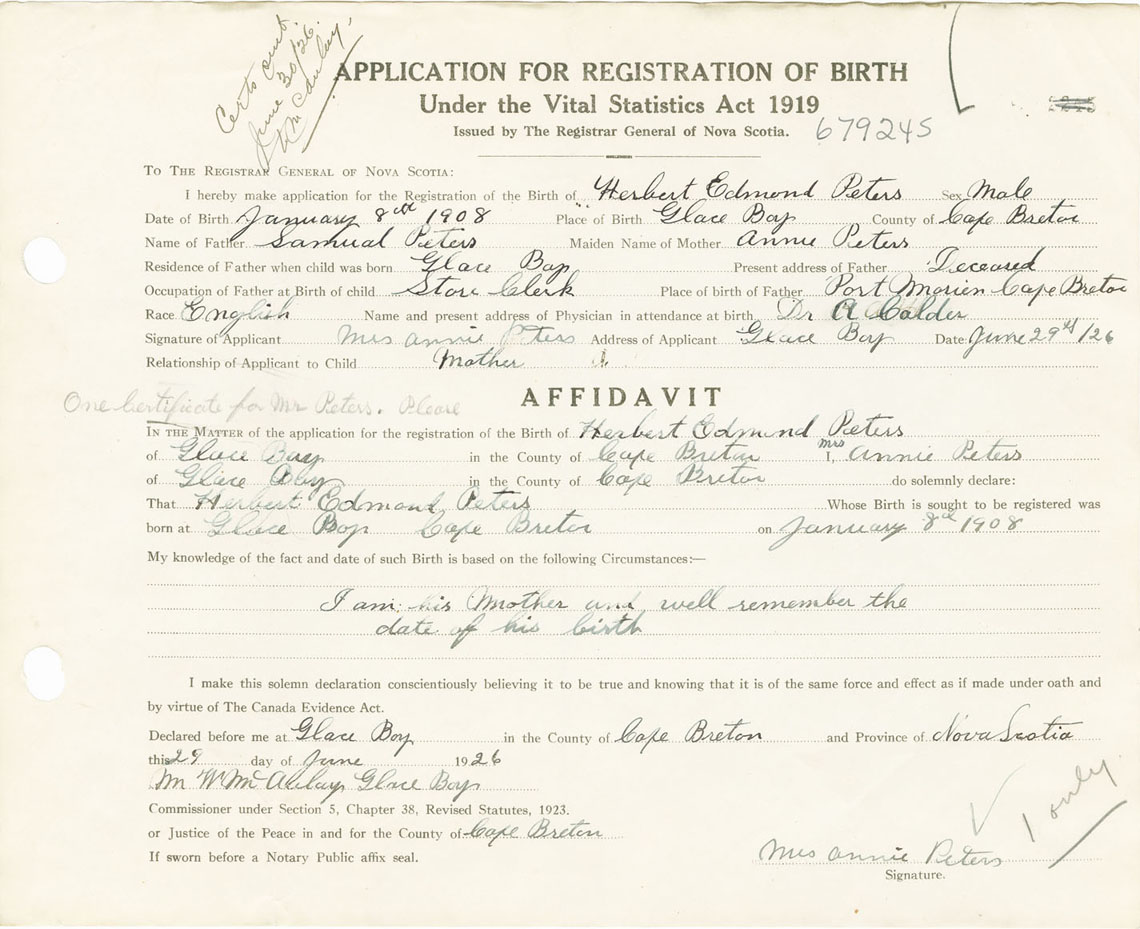 Certs out
June 30/26.
APPLICATION FOR REGISTRATION OF BIRTH
Under the Vital Statistics Act 1919
Issued by The Registrar General of Nova Scotia. 679245
TO THE REGISTRAR GENERAL OF NOVA SCOTIA:
I hereby make application for the Registration of the Birth of Herbert Edmond Peters Sex Male
Date of Birth January 8th 1908 Place of Birth Glace Bay County of Cape Breton
Name of Father Samual Peters Maiden Name of Mother Annie Peters
Residence of Father when child was born Glace Bay Present address of Father Deceased
Occupation of Father at Birth of child Store Clerk Place of birth of Father Port Morien Cape Breton
Race English Name and present address of Physician in attendance at birth Dr A Calder
Signature of Applicant Mrs Annie Peters Address of Applicant Glace Bay Date June 29th/26
Relationship of Applicant to Child Mother
AFFIDAVIT
One Certificate for Mr Peters. Please
IN THE MATTER of the application for the registration of the Birth of Herbert Edmund Peters
of Glace Bay in the County of Cape Breton I, Mrs Annie Peters
of Glace Bay in the County of Cape Breton do solemnly declare:
That Herbert Edmond Peters Whose Birth is sought to be registered was
born at Glace Bay Cape Breton on January 8th 1908
My knowledge of the fact and date of such Birth is based on the following Circumstances:—
I am his Mother and well remember the
date of his birth
I make this solemn declaration conscientiously believing it to be true and knowing that it is of the same force and effect as if made under oath and
by virtue of The Canada Evidence Act.
Declared before me at Glace Bay in the County of Cape Breton and Province of Nova Scotia
this 29 day of June 1926
M W McAulay Glace Bay
Commissioner under Section 5, Chapter 38, Revised Statutes, 1923.
or Justice of the Peace in and for the County of Cape Breton
1 only
If sworn before a Notary Public affix seal.
Mrs Annie Peters
Signature.